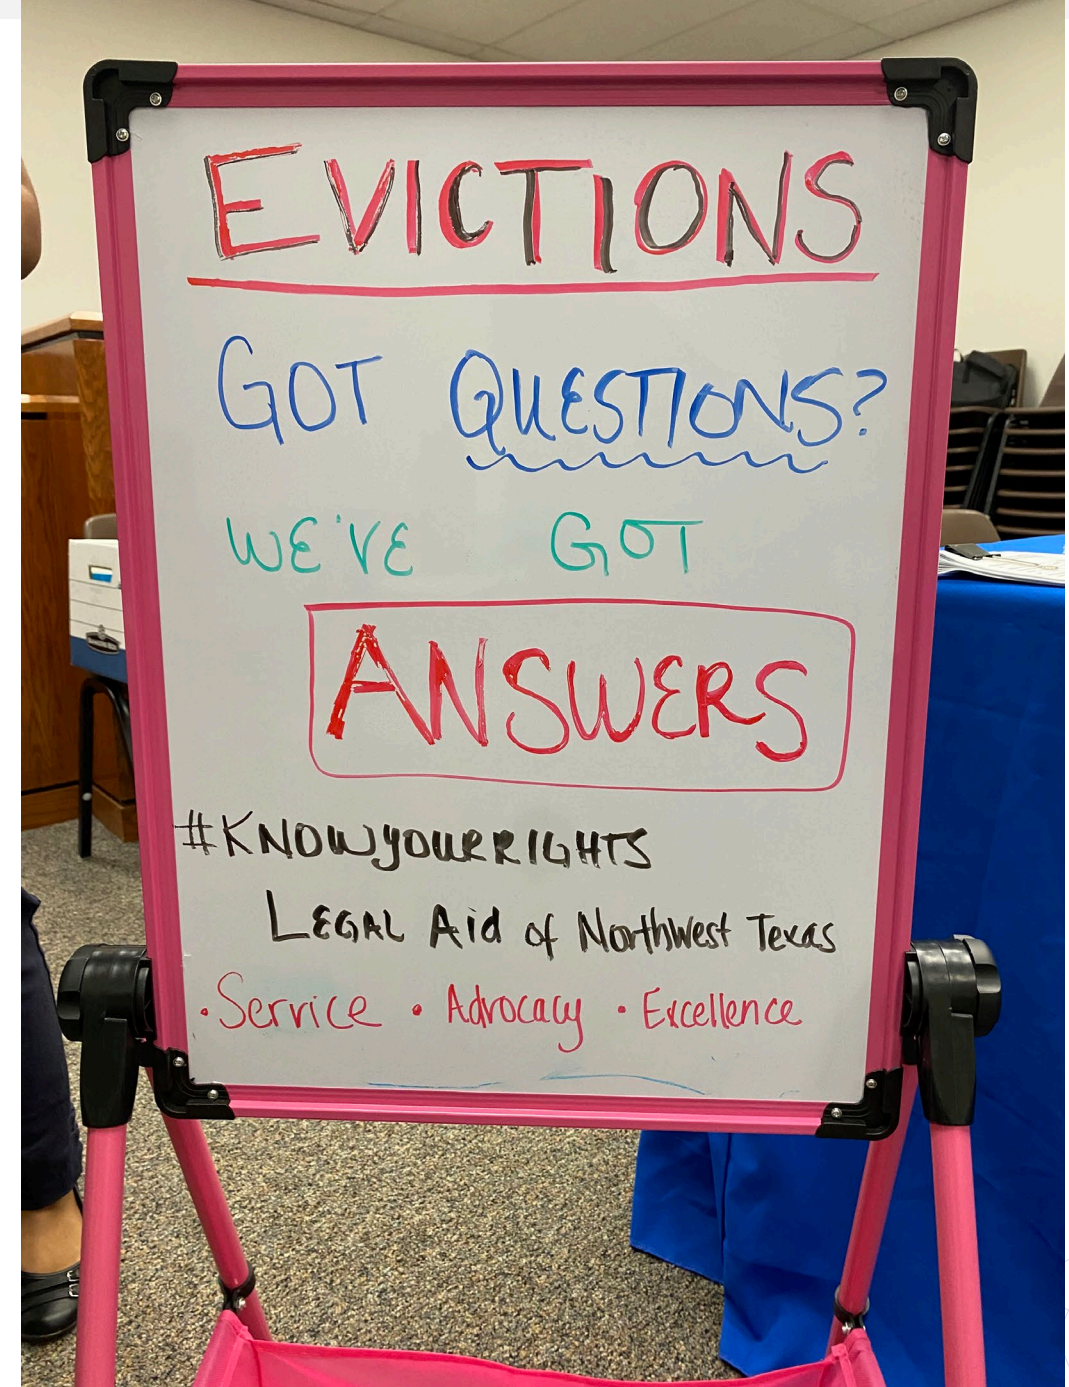 EVICTIONS
GOT QUESTIONS?
WE'VE GOT
ANSWERS
#KNOWYOURRIGHTS
LEGAL Aid of Northwest Texas
· Service · Advocacy · Excellence